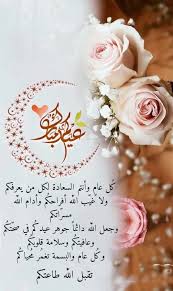 عيدكم مبارك
كل عام وأنتم السعادة لكل من يعرفكم
ولا غيب الله أفراحكم وأدام الله
مسراتكم
وجعل الله دائماً جوهر عيدكم في صحتكم
وعافيتكم وسلامة قلوبكم
وكل عام والبسمة تغمر محياكم
تقبل الله طاعتكم